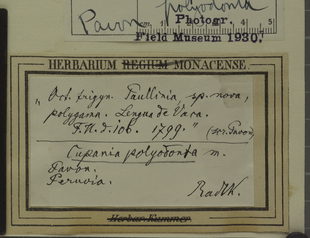 Pavon polyodonta
5
Photogr.
Field Museum 1930.
HERBARIUM REGIUM MONACENSE.
„Oct. trigyn. Paullinia, sp. nova,
polygama. Lengua de Vaca.
1799."
Cupania polyodonta m.
Pavon.
Peruvia.
Radlk.
Herbar-Kammer